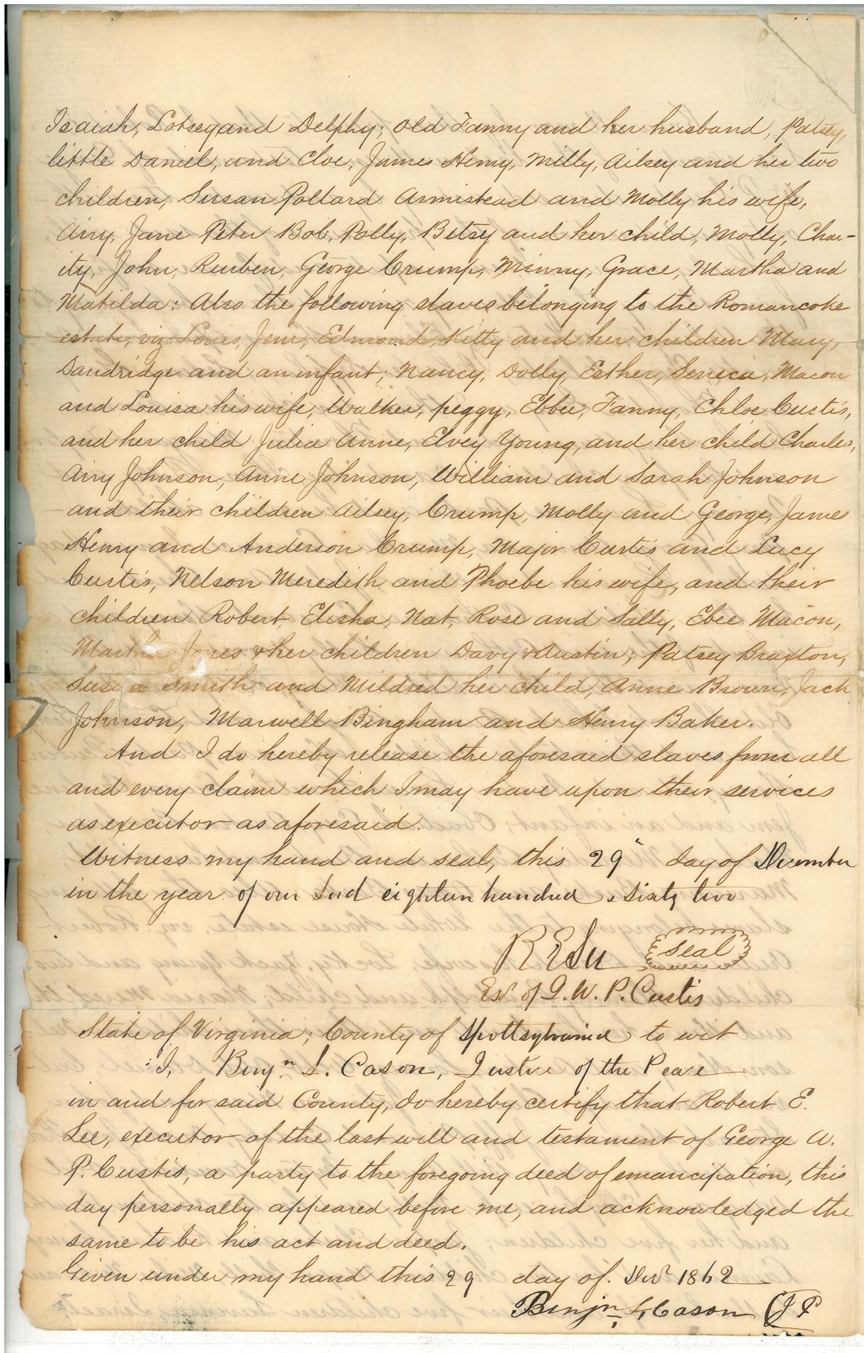 Isaiah, Lotsey and Delphy; old Fanny and her husband, Patsey,
little Daniel, and Cloe, James Henry, Milly, Ailsey and her two
children, Susan Pollard Armistead and Molly his wife,
Airy, Jane Peter Bob, Polly, Betsy and her child, Molly, Char-
ity, John, Reuben, George Crump, Minny, Grace, Martha and
Matilda: Also the following slaves belonging to the Romancoke
estate, viz: Louis, Jem, Edmond, Kitty and her children Mary,
Dandridge and an infant; Nancy, Dolly, Esther, Seneca, Macon
and Louisa his wife, Walker, peggy, Ebbee, Fanny, Chloe Custis,
and her child Julia Anne, Elvey Young, and her child Charles,
Airy Johnson, Anne Johnson, William and Sarah Johnson
and their children Ailsey, Crump, Molly and George, James
Henry and Anderson Crump, Major Custis and Lucy
Custis, Nelson Meredith and Phoebe his wife, and their
children Robert Elisha, Nat, Rose and Sally, Ebee Macon,
Martha Jones & her children Davy & Austin; Patsey Braxton,
Susan Smith and Mildred her child, Anne Brown, Jack
Johnson, Marwell Bingham and Henry Baker.
And I do hereby release the aforesaid slaves from all
and every claim which I may have upon their services
as executor as aforesaid.
Witness my hand and seal, this 29" day of December
in the year of our Lord eighteen hundred & sixty two
R E Lee seal
Exr of G. W. P. Custis
State of Virginia; County of Spottsylvania to wit
I, Benjn S. Cason, Justice of the Peace
in and for said County, do hereby certify that Robert E.
Lee, executor of the last will and testament of George W.
P. Custis, a party to the foregoing deed of emancipation, this
day personally appeared before me, and acknowledged the
same to be his act and deed.
Given under my hand this 29 day of. Decr 1862
Benjn S Cason J P